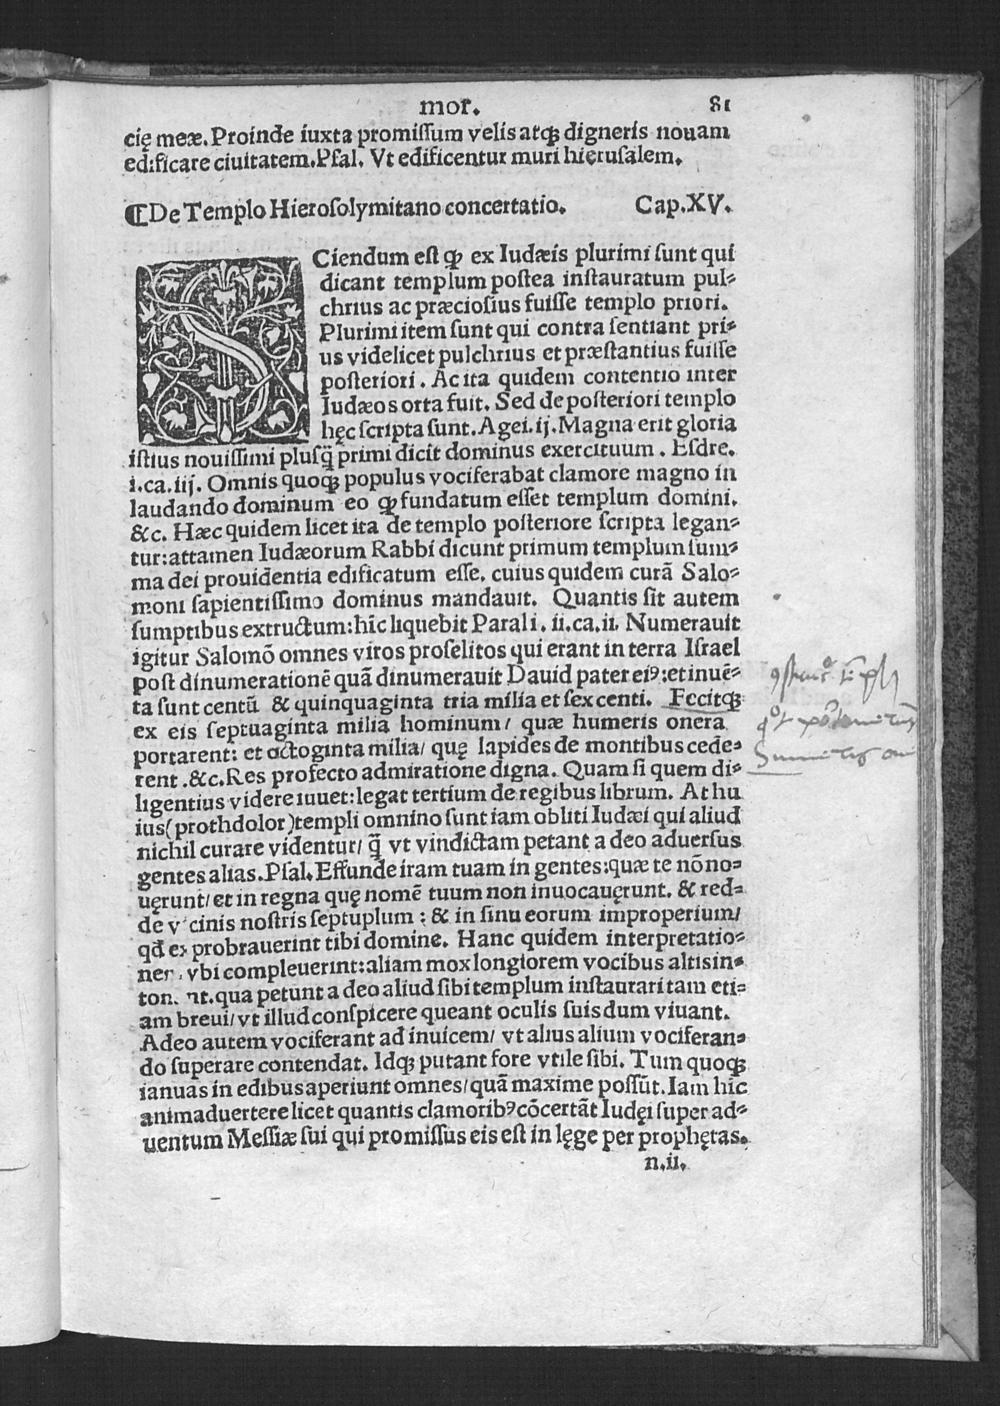 mor. 81
cię meæ. Proinde iuxta promissum velis atqꝫ digneris nouam
edificare ciuitatem. Psal. Vt edificentur muri hięrusalem.
¶De Templo Hierosolymitano concertatio. Cap.XV.
SCiendum est ꝙ ex Iudæis plurimi sunt qui
dicant templum postea instauratum pul-
chrius ac præciosius fuisse templo priori.
Plurimi item sunt qui contra sentiant pri-
us videlicet pulchrius et præstantius fuisse
posteriori. Ac ita quidem contentio inter
Iudæos orta fuit. Sed de posteriori templo
hęc scripta sunt. Agei. ij. Magna erit gloria
istius nouissimi plusq̃ primi dicit dominus exercituum. Esdre.
i.ca.iij. Omnis quoqꝫ populus vociferabat clamore magno in
laudando dominum eo ꝙ fundatum esset templum domini.
&c. Hæc quidem licet ita de templo posteriore scripta legan-
tur: attamen Iudæorum Rabbi dicunt primum templum sum-
ma dei prouidentia edificatum esse, cuius quidem curā Salo-
moni sapientissimo dominus mandauit. Quantis sit autem
sumptibus extructum: hīc liquebit Parali. ii.ca.ii. Numerauit
igitur Salomō omnes viros proselitos qui erant in terra Israel
post dinumerationē quā dinumerauit Dauid pater eiꝰ: et inuē-
ta sunt centū & quinquaginta tria milia et sexcenti. Fecitqꝫ
ex eis septuaginta milia hominum/ quæ humeris onera
portarent: et octoginta milia/ quę lapides de montibus cede-
rent .&c. Res profecto admiratione digna. Quam si quem di-
ligentius videre iuuet: legat tertium de regibus librum. At hu
ius (prothdolor) templi omnino sunt iam obliti Iudæi qui aliud
nichil curare videntur/ q̃ vt vindictam petant a deo aduersus
gentes alias. Psal. Effunde iram tuam in gentes: quæ te nō no-
uęrunt/ et in regna quę nomē tuum non inuocauęrunt. & red-
de v cinis nostris septuplum: & in sinu eorum improperium/
qđ ex probrauerint tibi domine. Hanc quidem interpretatio-
ner vbi compleuerint: aliam mox longiorem vocibus altis in-
ton nt. qua petunt a deo aliud sibi templum instaurari tam eti-
am breui/ vt illud conspicere queant oculis suis dum viuant.
Adeo autem vociferant ad inuicem/ vt alius alium vociferan-
do superare contendat. Idqꝫ putant fore vtile sibi. Tum quoqꝫ
ianuas in edibus aperiunt omnes/ quā maxime possūt. Iam hīc
animaduertere licet quantis clamoribꝰ cōcertāt Iudęi super ad-
uentum Messiæ sui qui promissus eis est in lęge per prophętas.
n.ii.